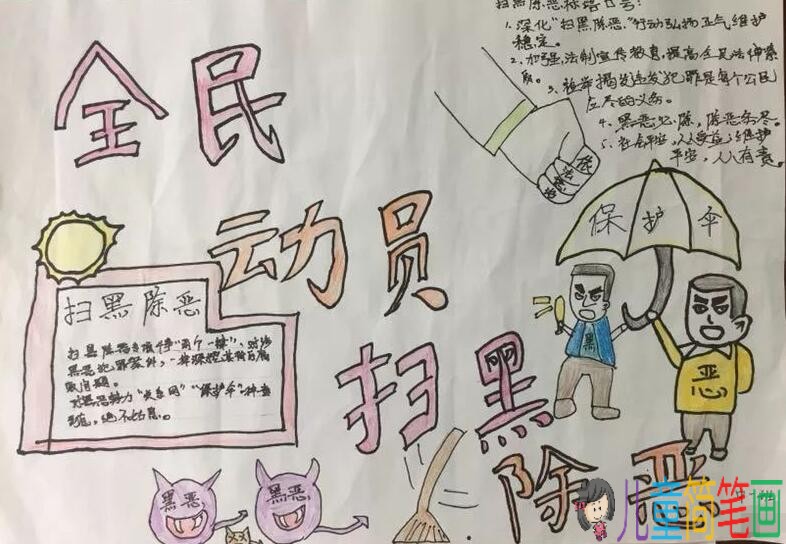 扫黑除恶标语口号:
1、深化"扫黑除恶"行动弘扬正气维护
稳定。
2、加强法制宣传教育,提高全民法律素
质。
3、检举揭发违发犯罪是每个公民
应尽的义务。
4、黑恶必除,除恶务尽。
5、社会平安,人人受益;维护
平安,人人有责。
全民
动员
扫黑
除恶
依法惩治
保护伞
黑
恶
扫黑除恶
扫黑除恶
黑恶犯罪案件,一律深挖其背后腐
败问题。
对黑恶势力"关系网""保护伞"一律查
到底,绝不姑息。
黑恶
黑恶
儿童简笔画